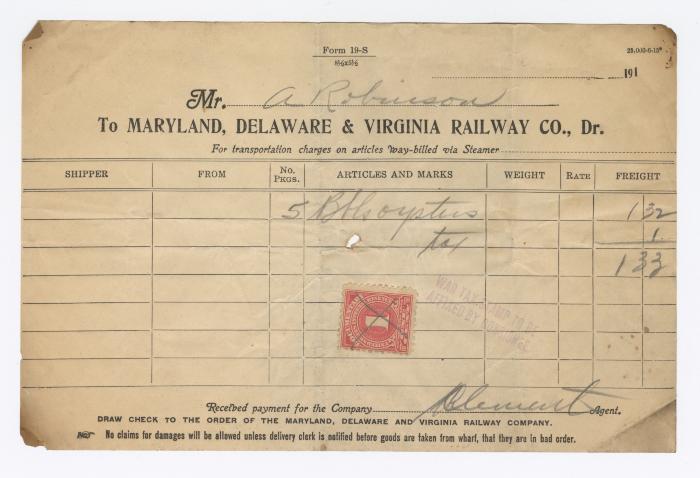 Form 19-S
8½x5½
25,000-6-15
191
Mr. A Robinson
To MARYLAND, DELAWARE & VIRGINIA RAILWAY CO., Dr.
For transportation charges on articles Way-billed via Steamer
SHIPPER FROM No. Pkgs. ARTICLES AND MARKS WEIGHT RATE FREIGHT
5 Bbls oysters 1 32
tax 1
1 33
WAR TAX STAMP TO BE
AFFIXED BY CONSIGNEE
Received payment for the Company Clement Agent.
DRAW CHECK TO THE ORDER OF THE MARYLAND, DELAWARE AND VIRGINIA RAILWAY COMPANY.
No claims for damages will be allowed unless delivery clerk is notified before goods are taken from wharf, that they are in bad order.